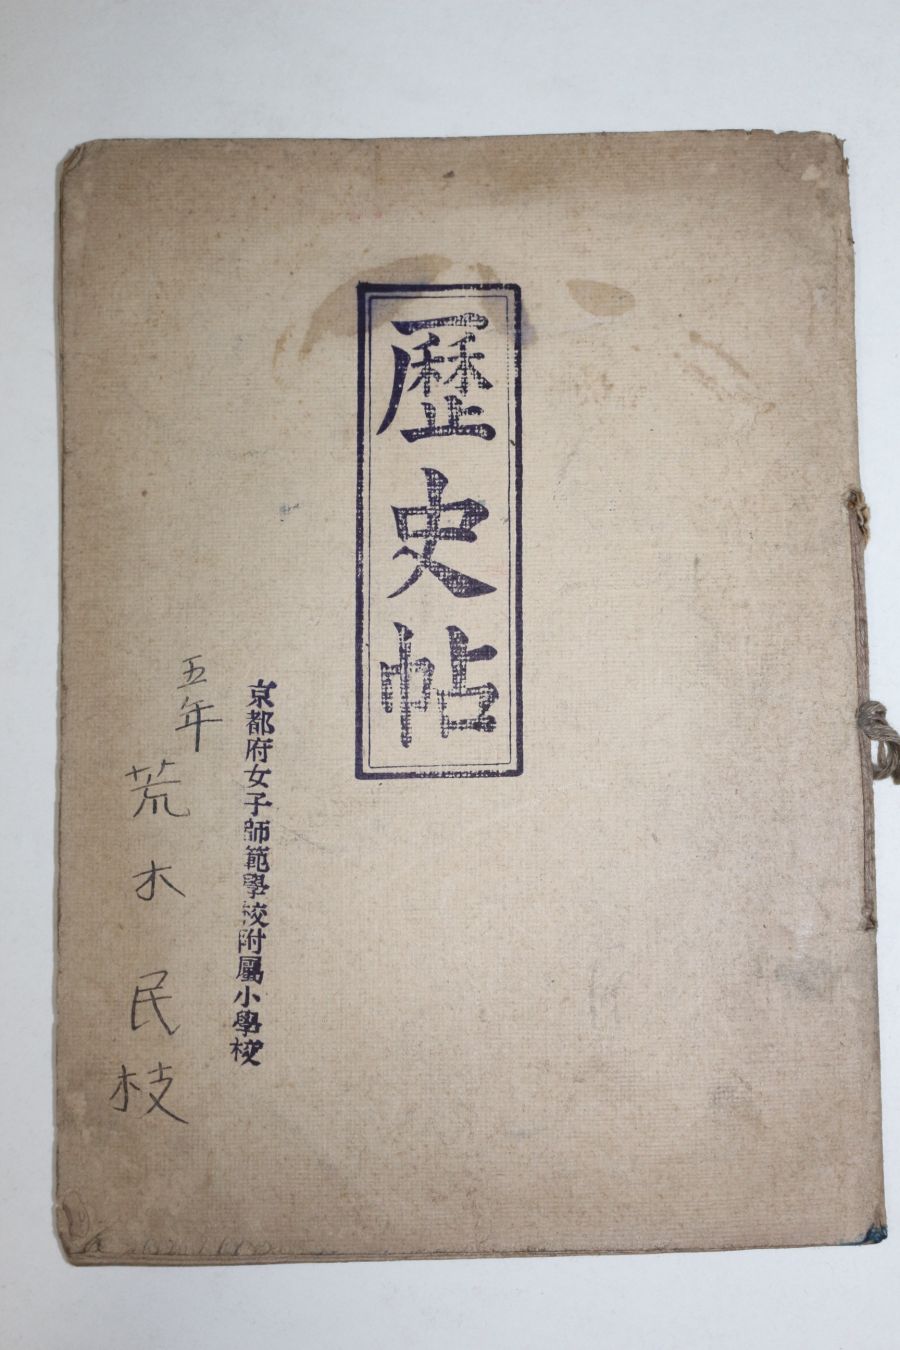 歷史帖
京都府女子師範學校附屬小學校
五年
荒木民枝